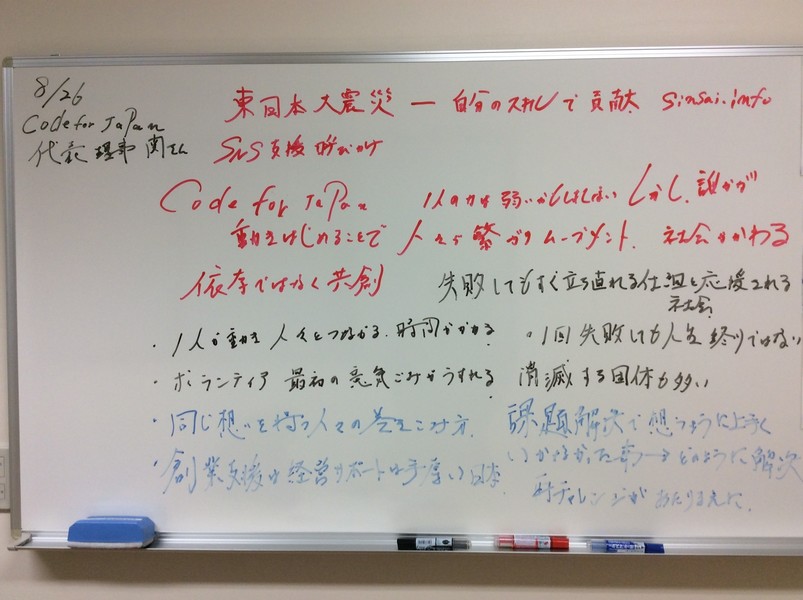 8/26
Code for JaPan
代表理事 関さん
東日本大震災 ー 自分のスキルで貢献 sinsai.info
SNS支援呼びかけ
Code for JaPan 1人の力は弱いかもしれない しかし、誰かが
動きはじめることで 人々が繋がりムーブメント、社会がかわる
依存ではなく共創
失敗してもすぐ立ち直れる仕組と応援される
社会
・1人が動き人々とつながる、時間がかかる
・1回失敗しても人生終りではない
・ボランティア 最初の意気ごみがうすれる 消滅する団体も多い
・同じ想いを持つ人々の巻きこみ方、
・創業支援や経営サポートは手厚い日本
課題解決で想うように上手く
いかなかった 事 どのように解決
再チャレンジがあたりまえに、